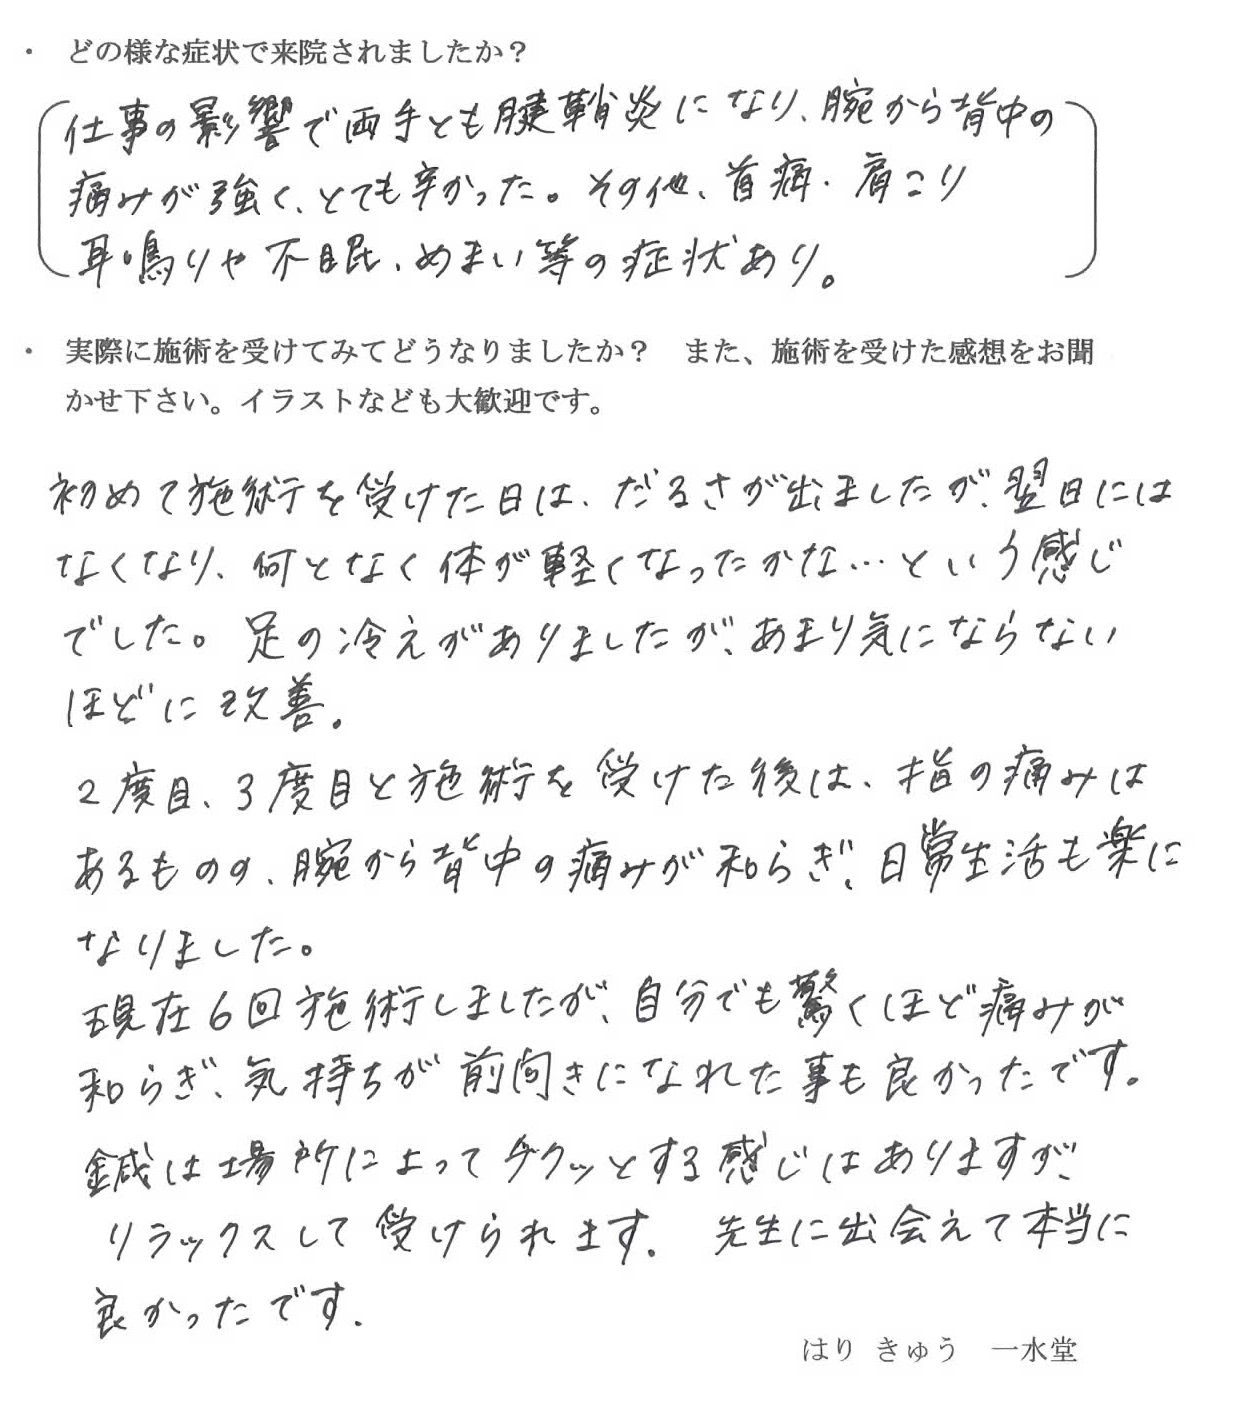 ・ どの様な症状で来院されましたか？
仕事の影響で両手とも腱鞘炎になり、腕から背中の
痛みが強く、とても辛かった。その他、首痛・肩こり
耳鳴りや不眠、めまい等の症状あり。
・ 実際に施術を受けてみてどうなりましたか？ また、施術を受けた感想をお聞
かせ下さい。イラストなども大歓迎です。
初めて施術を受けた日は、だるさが出ましたが、翌日には
なくなり、何となく体が軽くなったかな…という感じ
でした。足の冷えがありましたが、あまり気にならない
ほどに改善。
2度目、3度目と施術を受けた後は、指の痛みは
あるものの、腕から背中の痛みが和らぎ、日常生活も楽に
なりました。
現在6回施術しましたが、自分でも驚くほど痛みが
和らぎ、気持ちが前向きになれた事も良かったです。
鍼は場所によってチクッとする感じはありますが、
リラックスして受けられます。先生に出会えて本当に
良かったです。
はり きゅう 一水堂